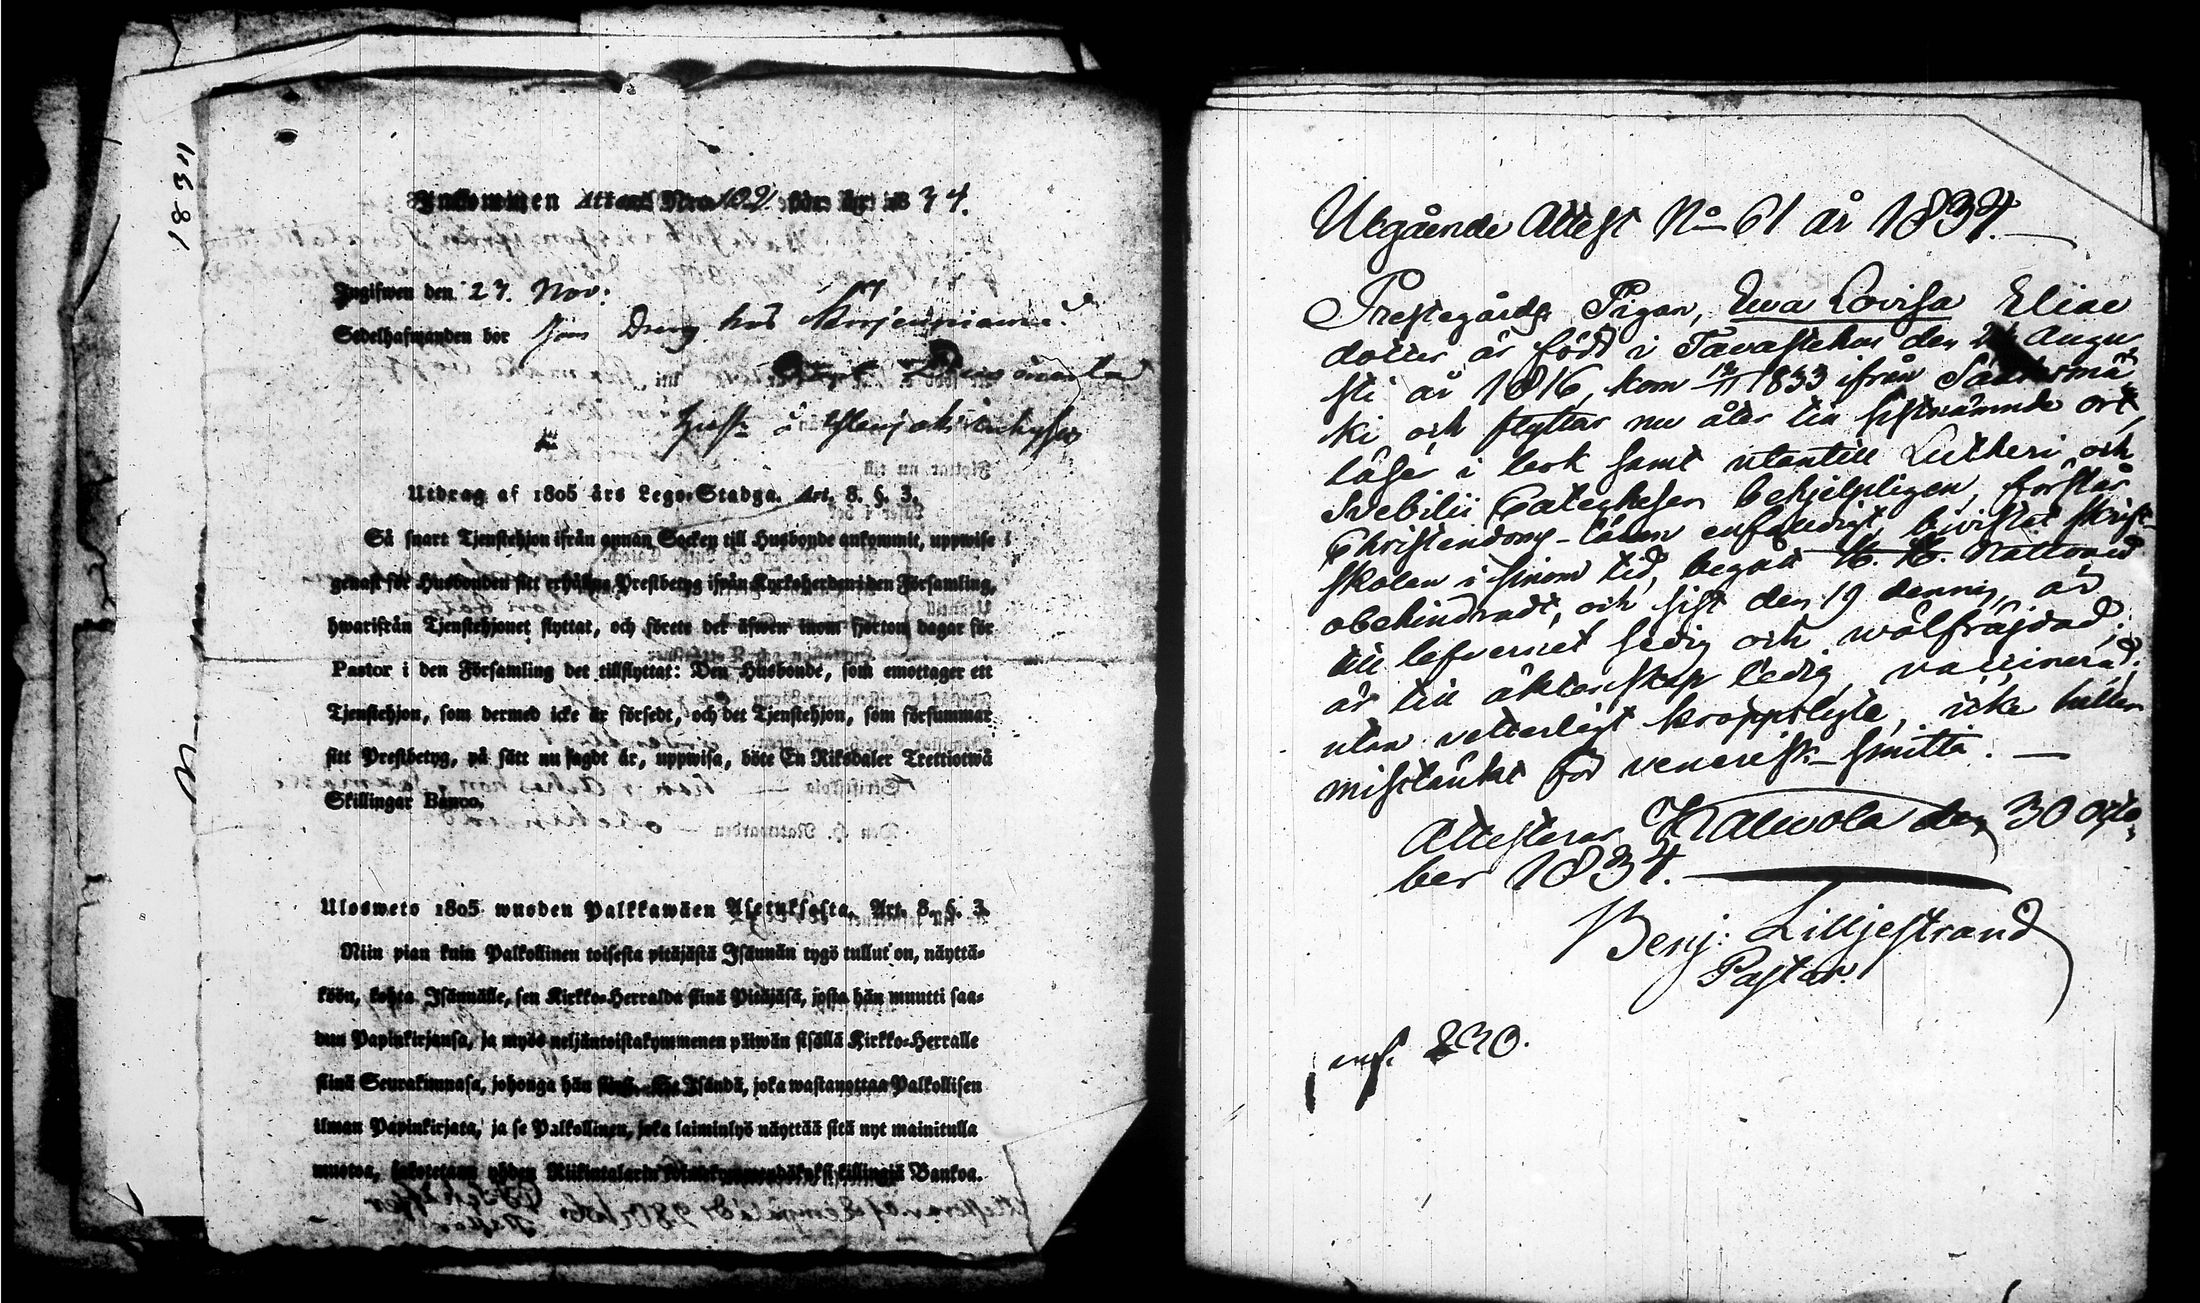 1834
Inkommen Attest Nro 102 för år 1834.
Ingifwen den 27. Nov:
Sedelhafwanden bor som Dräng hos
Utdrag af 1805 års Lego-Stadga. Art. 8. §. 3.
Så snart Tjenstehjon ifrån annan Socken till Husbonde ankommit, uppwise
genast för Husbonden sitt erhållna Prestbetyg ifrån Kyrkoherden i den Församling,
hwarifrån Tjenstehjonet flyttat, och förete det äfwen inom fjorton dagar för
Pastor i den Församling det tillflyttat: Den Husbonde, som emottager ett
Tjenstehjon, som dermed icke är försedt, och det Tjenstehjon, som försummar
sitt Prestbetyg, på sätt nu sagdt är, uppwisa, böte En Riksdaler Trettiotwå
Skillingar Banco.
Ulosweto 1805 wuoden Palkkawäen Asetuksesta. Art. 8. §. 3.
Niin pian kuin Palkollinen toisesta pitäjästä Isännän tygö tullut on, näyttä-
köön, kohta Isännälle, sen Kirkko-Herralda siinä Pitäjäsä, josta hän muutti saa-
dun Papinkirjansa, ja myös neljäntoistakymmenen päiwän sisällä Kirkko-Herralle
siinä Seurakunnasa, johonga hän siirt. Se Isändä, joka wastanottaa Palkollisen
ilman Papinkirjata, ja se Palkollinen, joka laiminlyö näyttää sitä nyt mainitulla
muotoa, sakotetaan yhden Riikintalarin kolmekymmendäkaksi killingiä Bankoa.
Utgående Attest No 61 år 1834.
Prestegårds Pigan, Ewa Lovisa Elias
dotter är född i Tavastehus den Augu
sti år 1816, kom 12/11 1833 ifrån Sääksmä
ki och flyttar nu åter till sistnämnde ort,
läser i bok samt utantill Lutheri och
Svebilii Catechesen behjelpligen, förstår
Christendoms-läran enfaldigt, bivistat Skrift-
skolan i sinom tid, begått H. H. Nattvard
obehindradt, och sist den 19 dennes, är
till lefvernet sedig och wälfräjdad;
är till äktenskap ledig, vaccinerad,
utan vetterligt kroppslyte, icke heller
misstänkt för venerisk smitta. —
Attesterar Kalvola den 30 Octo-
ber 1834.
Benj: Lilljestrand
Pastor.
230.